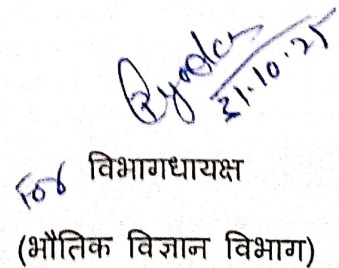 31.10.21
For विभागधायक्ष
(भौतिक विज्ञान विभाग)